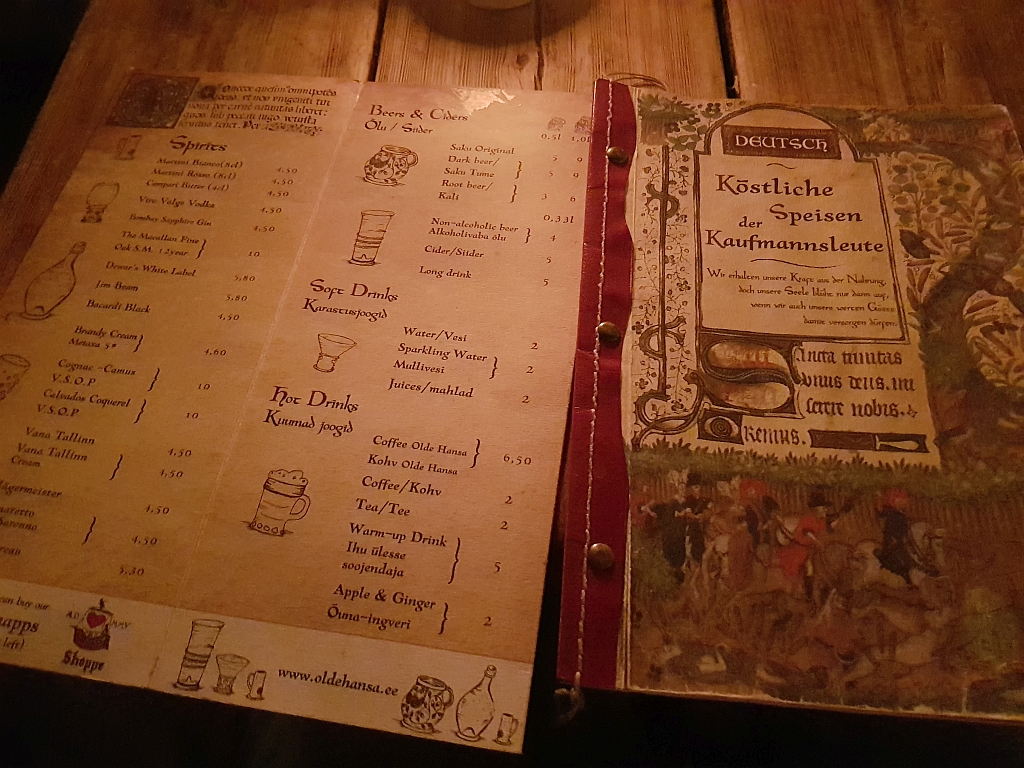 Spirits
Martini Bianco(8cl)
Martini Rosso (8cl) 4,50
Campari Bitter (4cl) 4,50
4,50
Viru Valge Vodka
4,50
Bombay Sapphire Gin
4,50
The Macallan Fine
Oak S.M. 12year 10
Dewar's White Label
5,80
Jim Beam
5,80
Bacardi Black
4,50
Brandy Cream
Metaxa 5* 4,60
Cognac -Camus
V.S.O.P 10
Calvados Coquerel
V.S.O.P 10
Vana Tallinn
4,50
Vana Tallinn
Cream 4,50
Jägermeister
4,50
4,50
5,30
can buy our
left)
Shoppe
Beers & Ciders
Õlu / Siider
0,5l 1,0l
Saku Original 5 9
Dark beer/
Saku Tume 5 9
Root beer/
Kali 3 6
0,33l
Non-alcoholic beer
Alkoholivaba õlu 4
Cider/Siider 5
Long drink 5
Soft Drinks
Karastusjoogid
Water/Vesi 2
Sparkling Water
Mullivesi 2
Juices/mahlad 2
Hot Drinks
Kuumad joogid
Coffee Olde Hansa
Kohv Olde Hansa 6,50
Coffee/Kohv 2
Tea/Tee 2
Warm-up Drink
Ihu ülesse
soojendaja 5
Apple & Ginger
Õuna-ingveri 2
www.oldehansa.ee
DEUTSCH
Köstliche
Speisen
der
Kaufmannsleute
Wir erhalten unsere Kraft aus der Nahrung,
doch unsere Seele blüht nur dann auf,
wenn wir auch unsere werten Gäste
damit versorgen dürfen.
Sancta trinitas
unus deus. mi
serere nobis.
Oremus.